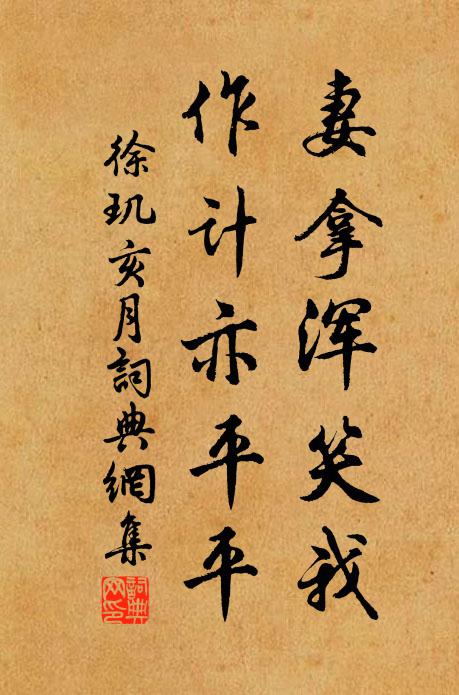 妻拿浑笑我
作计亦平平
徐玑亥月詞典網集
詞典网印